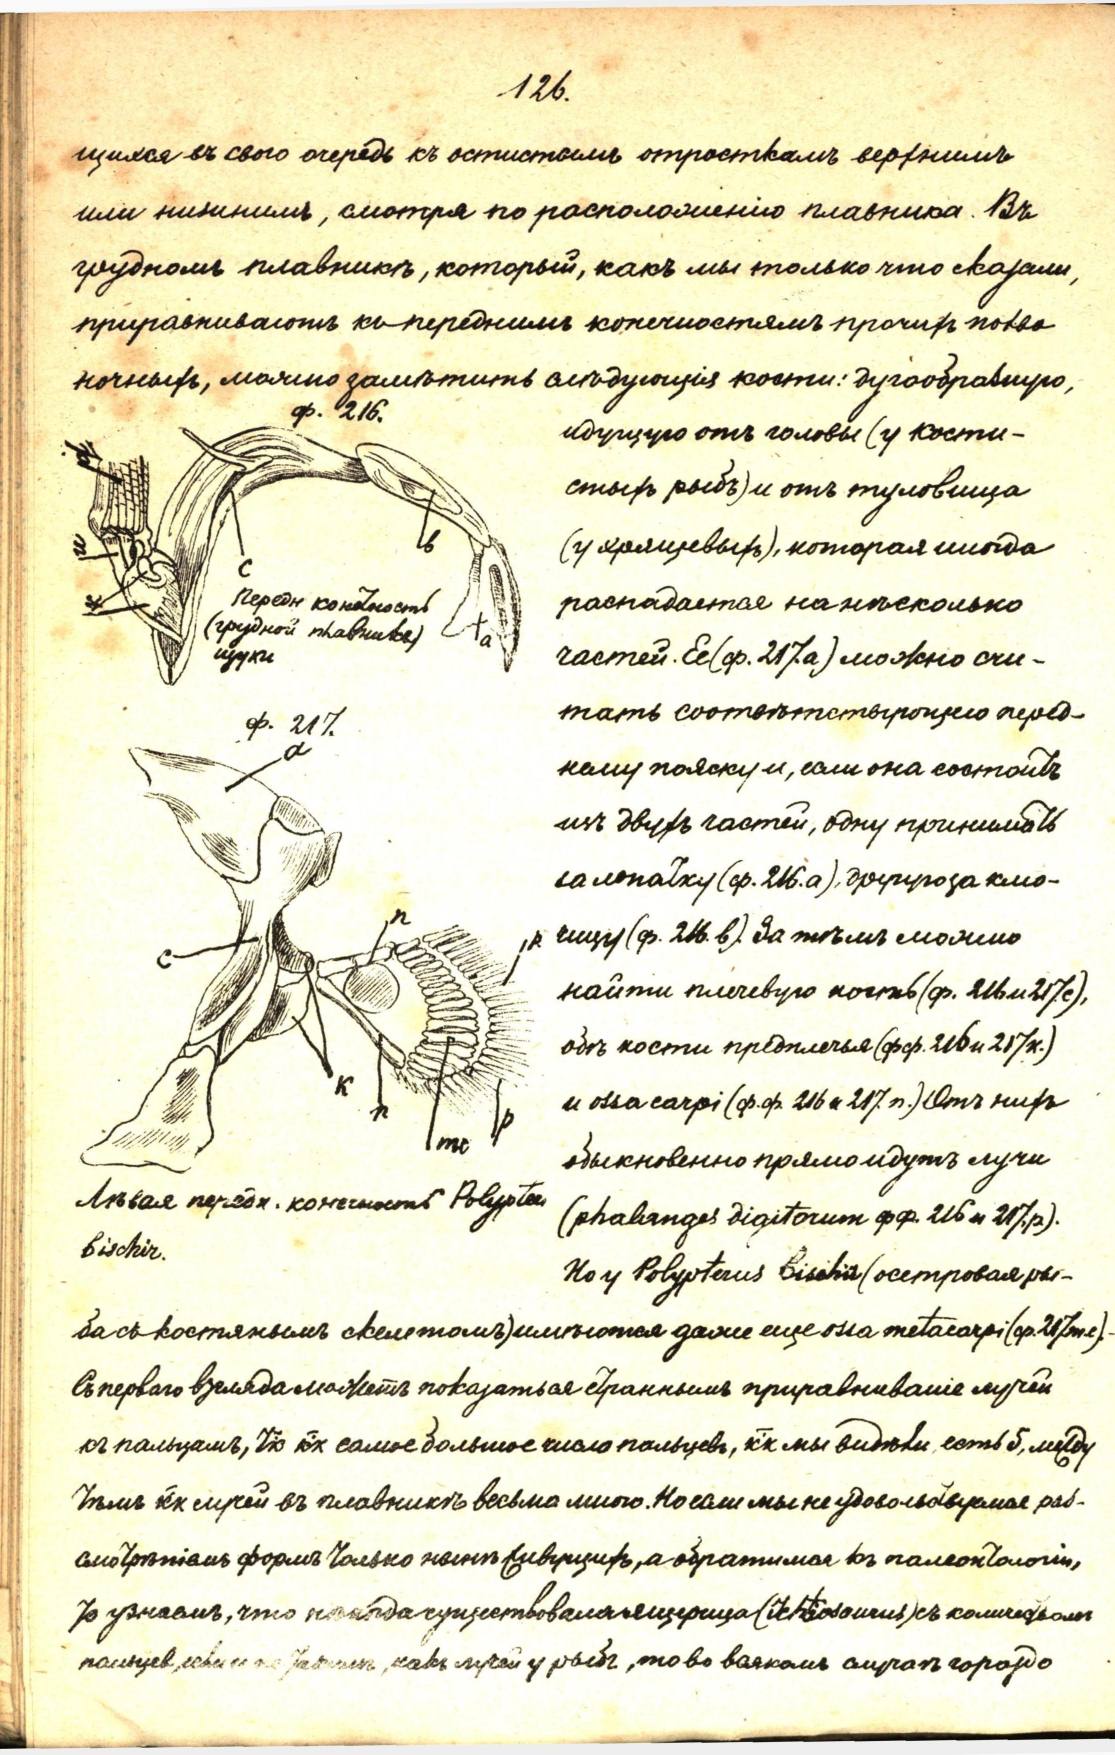 126.
щихся въ свою очередь къ остистымъ отросткамъ верхнимъ
или нижнимъ, смотря по расположенію плавника. Въ
грудномъ плавникѣ, который, какъ мы только что сказали,
приравниваютъ къ переднимъ конечностямъ прочихъ позво
ночныхъ, можно замѣтить слѣдующія кости: дугообразную,
ф. 216.
идущую отъ головы (у кости-
стыхъ рыбъ) и отъ туловища
(у хрящевыхъ), которая иногда
распадается на нѣсколько
частей. Ее (ф. 217.а) можно счи-
тать соотвѣтствующею перед-
нему пояску и, если она состоитъ
изъ двухъ частей, одну принимать
за лопатку (ф. 216.а), другую за клю-
чицу (ф. 216.в). За тѣмъ можно
найти плечевую кость (ф. 216 и 217.с),
обѣ кости предплечья (ф.ф. 216 и 217 к.)
и ossa carpi (ф.ф. 216 и 217. п.) Отъ нихъ
обыкновенно прямо идутъ лучи
(phalanges digitorum ф.ф. 216 и 217.р).
Но у Polypterus bischir (осетровая ры-
р
п
к
с
в
а
Передн конечность
(грудной плавникъ)
щуки
ф. 217.
а
с
п
р
к
п
mc
р
Лѣвая передн. конечность Polypteri
bischir.
ба съ костянымъ скелетомъ) имѣются даже еще ossa metacarpi (ф. 217.m.c).-
Съ перваго взгляда можетъ показаться страннымъ приравниваніе лучей
къ пальцамъ, т.к. к.к самое большое число пальцевъ, к.к мы видѣли, есть 5, между
тѣмъ к.к лучей въ плавникѣ весьма много. Но если мы не удовольствуемся раз-
смотрѣніемъ формъ только нынѣ живущихъ, а обратимся къ палеонтологіи,
то узнаемъ, что нѣкогда существовала ящерица (Ichtiosaurus) съ количествомъ
пальцевъ, если и не такимъ, какъ лучей у рыбъ, то во всякомъ случаѣ гораздо